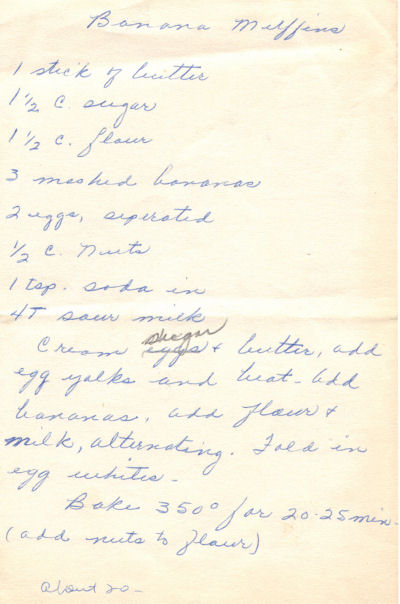 Banana Muffins
1 stick of butter
1 1/2 c. sugar
1 1/2 c. flour
3 mashed bananas
2 eggs, seperated
1/2 c. nuts
1 tsp. soda in
4T sour milk
sugar
Cream eggs + butter, add
egg yalks and beat - add
bananas, add flour +
milk, alternating. Fold in
egg whites -
Bake 350° for 20-25 min -
(add nuts to flour)
About 20 -